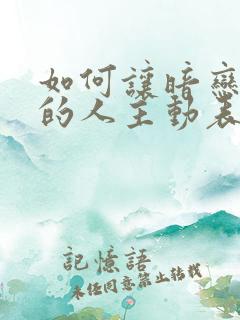 如何讓暗戀
的人主動表
記憶語
未經同意禁止轉載